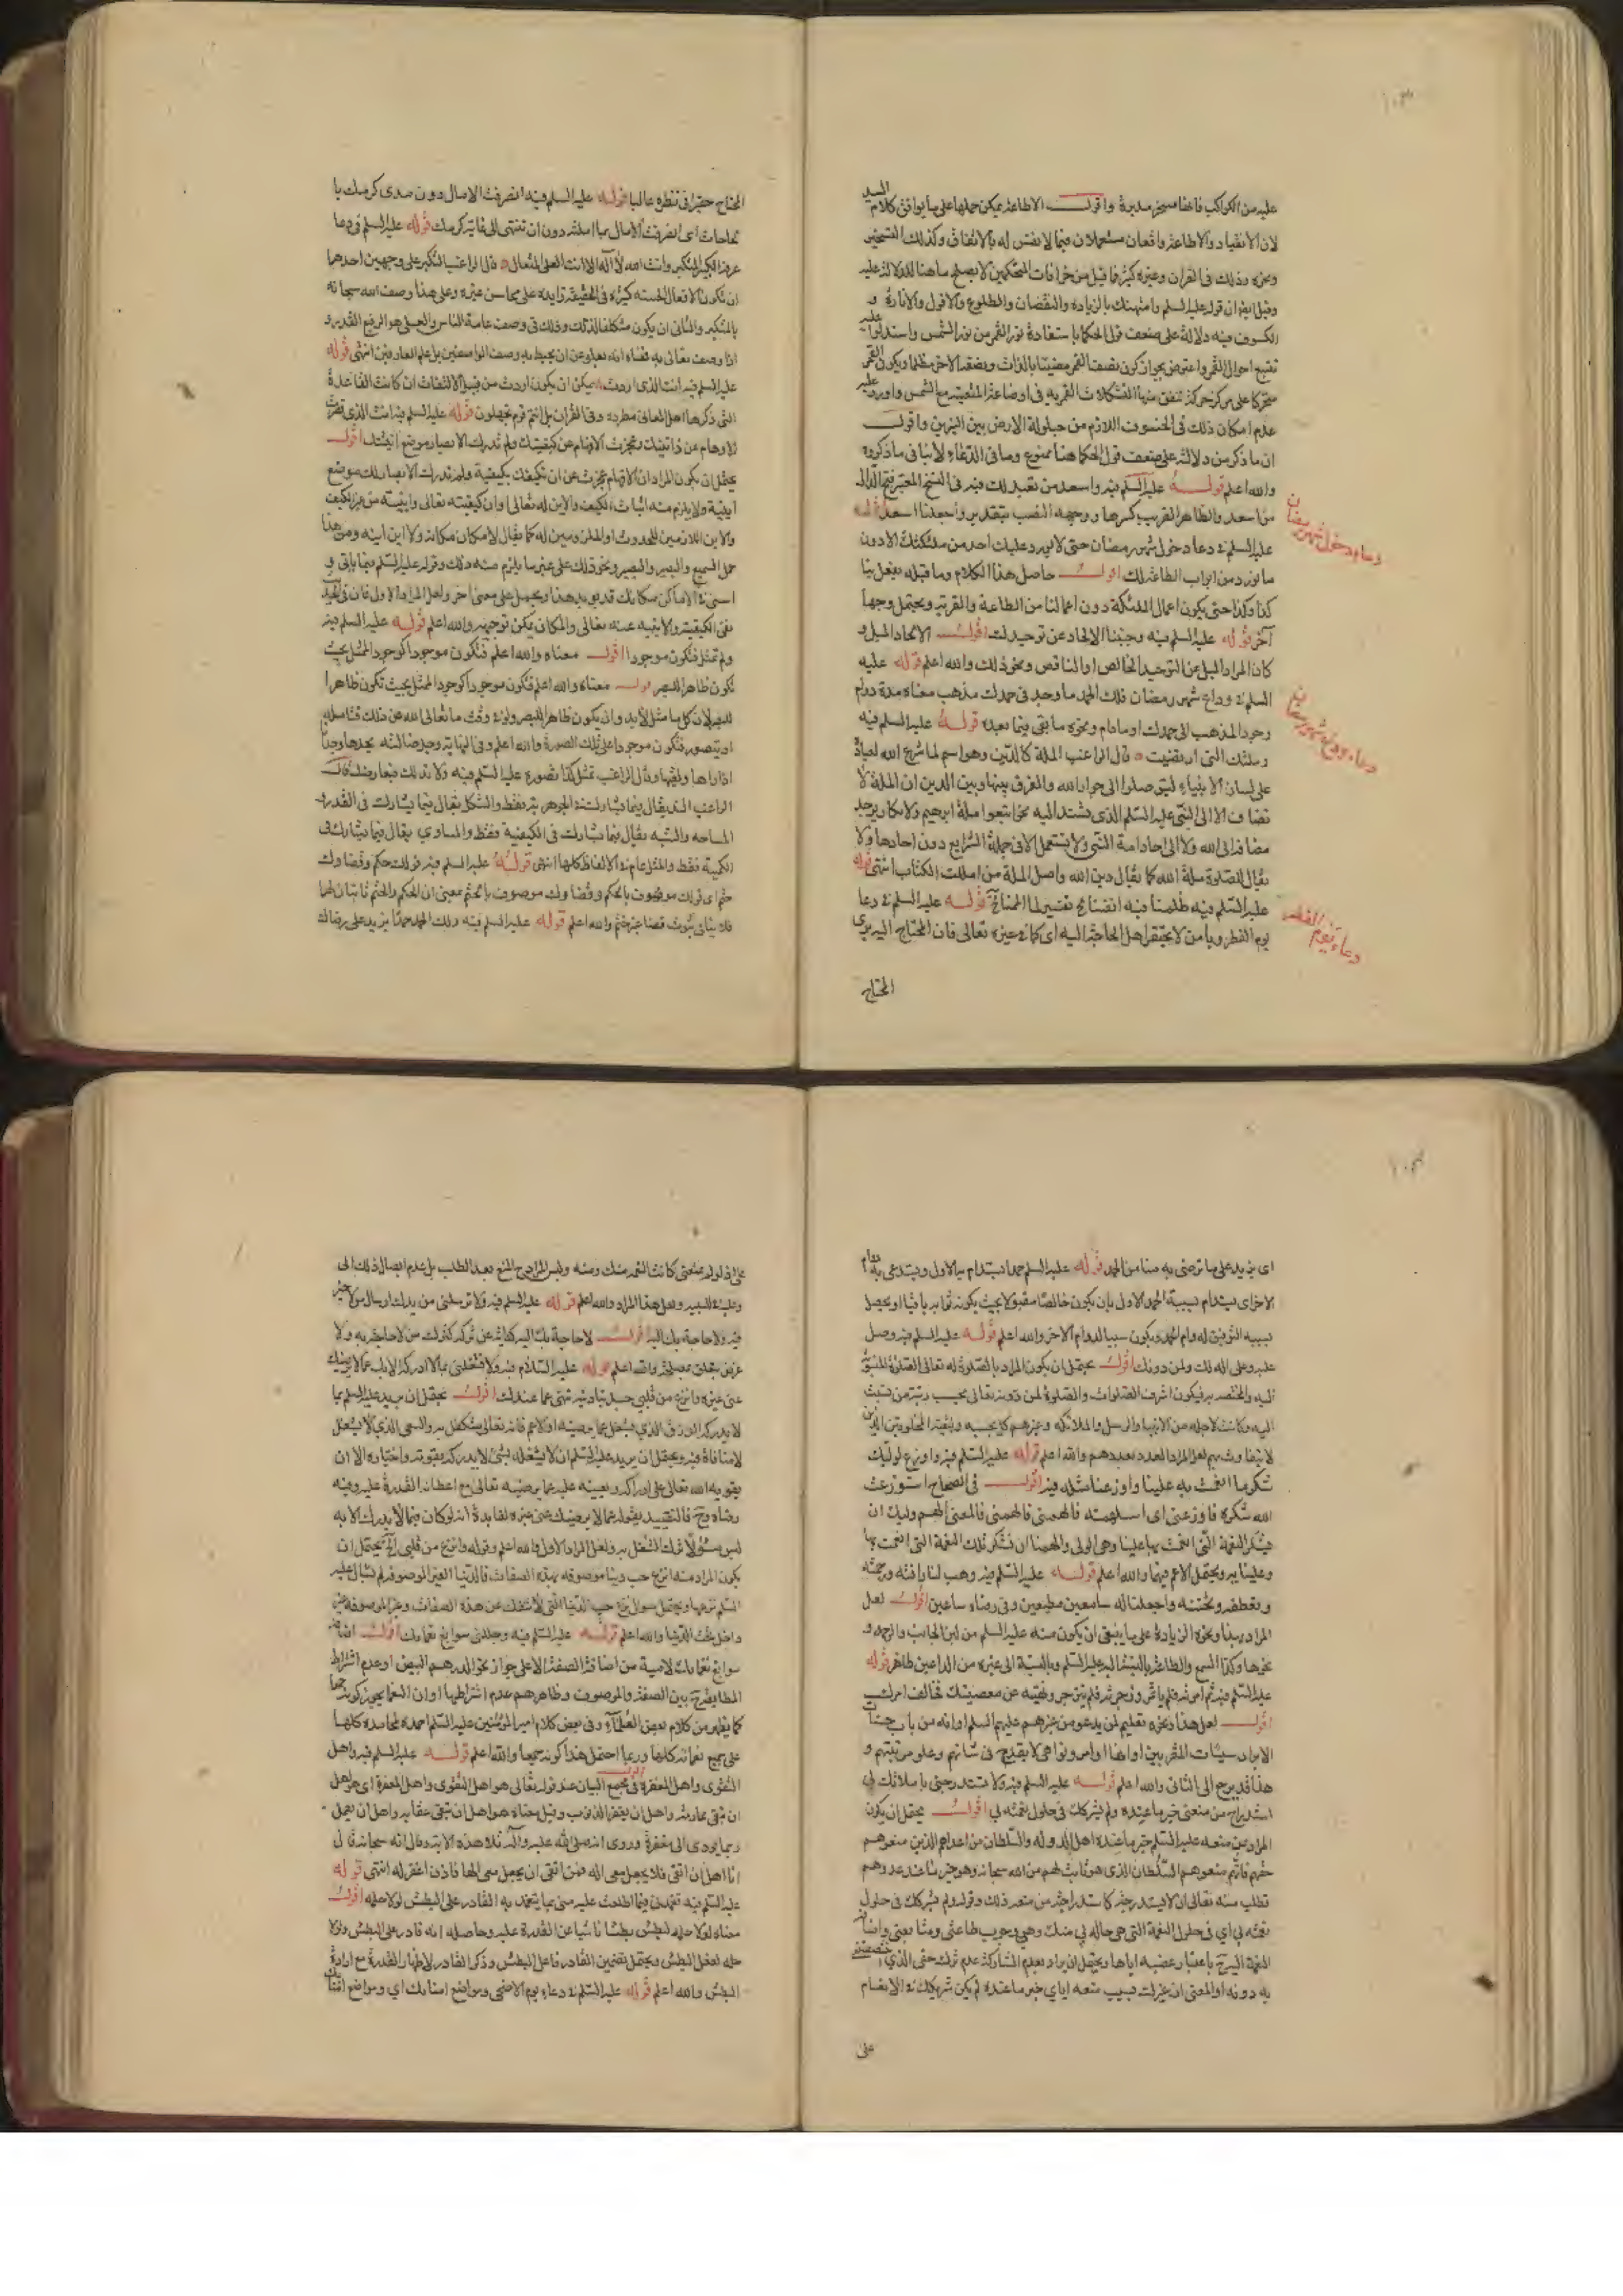 عليه من الكواكب فانها مسخرة مدبرة واقول الاطاعة يمكن حملها على ما يوافق كلام السيد
لان الانقياد والاطاعة واقعان مستعملان فيما لا نفس له بالاتفاق وكذلك التسخير
ونحوه وذلك في القران وغيره كثير فما قيل من خرافات المتحكمين لا يصلح ماهنا للدلالة عليه
وقيل ايضا ان قوله عليه السلم وامتهنك بالزيادة والنقصان والطلوع والافول والانارة و
الكسوف فيه دلالة على ضعف قول الحكما باستفادة نور القمر من نور الشمس واستدلوا عليه
بتتبع احوال القمر واعترض بجواز كون نصف القمر مضيئا بالذات ونصفه الاخر مظلما ويكون القمر
متحركا على مركز حركة تتفق منها التشكلات القمرية في اوضاعه المتعينة مع الشمس واورد عليه
عدم امكان ذلك في الخسوف اللازم من حيلولة الارض بين النيرين واقول
ان ما ذكر من دلالته على ضعف قول الحكما هنا ممنوع وما في الدعاء لا ينافي ما ذكروه
والله اعلم قوله عليه السلم فيه واسعد من تعبد لك فيه في النسخ المعتبرة فتح الدال
من اسعد والظاهر القريب كسرها ووجهه النصب بتقدير واجعلنا اسعد قوله
عليه السلم في دعا دخول شهر رمضان حتى لا يورد عليك احد من ملئكتك الا دون
ما نورد من ابواب الطاعة لك اقول حاصل هذا الكلام وما قبله تفعل بنا
كذا وكذا حتى يكون اعمال الملئكة دون اعمالنا من الطاعة والقربة ويحتمل وجها
آخر قوله عليه السلم فيه وجنبنا الالحاد عن توحيدك اقول الالحاد الميل و
كان المراد الميل عن التوحيد الخالص او الناقص ونحو ذلك والله اعلم قوله عليه
السلم في وداع شهر رمضان فلك الحمد ما وجد في حمدك مذهب معناه مدة دوام
وجود المذهب الى حمدك او مادام ونحوه ما بقي فيما بعده قوله عليه السلم فيه
وملتك التي ارتضيت قال الراغب الملة كالدين وهو اسم لما شرع الله لعباده
على لسان الانبياء ليتوصلوا الى جوار الله والفرق بينها وبين الدين ان الملة لا
تضاف الا الى النبي عليه السلم الذي يستند اليه نحو اتبعوا ملة ابرهيم ولا تكاد يوجد
مضافة الى الله ولا الى احاد امة النبي ولا تستعمل الا في جملة الشرايع دون احادها ولا
يقال للصلوة ملة الله كما يقال دين الله واصل الملة من امللت الكتاب انتهى قوله
عليه السلم فيه ظلمنا فيه انفسنا
يوم الفطر ويا من لا يحتقر اهل الحاجة اليه اي كما في غيره تعالى فان المحتاج اليه يرى
المحتاج
دعاء دخول شهر رمضان
دعاء وداع شهر رمضان
دعاء يوم الفطر
المحتاج حقيرا في نظره غالبا قوله عليه السلم فيه انصرفت الامال دون مدى كرمك با
لحاجات اي انصرفت الامال بما املته دون ان تنتهى الى غاية كرمك قوله عليه السلم في دعا
عرفة الكبير المتكبر وانت الله لا آله الا انت العلى المتعال قال الراغب التكبر على وجهين احدهما
ان تكون الافعال الحسنة كثيرة في الحقيقة زايدة على محاسن غيره وعلى هذا وصف الله سبحانه
بالمتكبر والثاني ان يكون متكلفا لذلك وذلك في وصف عامة الناس والعلى هو الرفيع القدر و
اذا وصف تعالى به فمعناه انه يعلو عن ان يحيط به وصف الواصفين بل علم العارفين انتهى قوله
عليه السلم فيه انت الذي اردت يمكن ان يكون اردت من قبيل الالتفات ان كانت القاعدة
التي ذكرها اهل المعاني مطردة وفي القران بل انتم قوم تجهلون قوله عليه السلم فيه انت الذي قصرت
الاوهام عن ذاتيتك وعجزت الافهام عن كيفيتك ولم تدرك الابصار موضع اينيتك اقول
يحتمل ان يكون المراد ان الافهام عجزت عن ان تكيفك بكيفية ولم تدرك الابصار لك موضع
اينية ولا يلزم منه اثبات الكيف والاين له تعالى
والاين اللازمين للحدوث
حمل السميع والبصير ونحو ذلك على غير ما يلزم منه ذلك وقوله عليه السلم فيما ياتي و
نفى الكيفية والاينية عنه تعالى والمكان يمكن توجيهه والله اعلم قوله عليه السلم فيه
ولم تمثل فتكون موجودا اقول معناه والله اعلم فتكون موجودا كوجود الممثل بحيث
تكون ظاهرا للبصر قوله معناه والله اعلم فتكون موجودا كوجود الممثل بحيث تكون ظاهرا
للبصر لان كل ما مثل لابد وان يكون ظاهرا للبصر ولو في وقت ما تعالى الله عن ذلك فتامله
او يتصور فتكون موجودا على تلك الصورة والله اعلم وفي النهاية وجد ضالته يجدها وجدانا
اذا راها ولقيها وقال الراغب تمثل كذا تصوره عليه السلم فيه ولا ند لك فيعارضك قال
الراغب الند يقال فيما يشارك في الجوهرية فقط والشكل يقال فيما يشارك في القدر و
المساحة والشبه يقال فيما يشارك في الكيفية فقط والمساوي يقال فيما يشارك في
الكمية فقط والمثل عام في الالفاظ كلها انتهى قوله عليه السلم فيه قولك حكم وقضاؤك
حتم اي قولك موصوف بالحكم وقضاؤك موصوف بالحتم بمعنى ان الحكم والحتم ثابتان لهما
فلا ينافي ثبوت قضا غير حتم والله اعلم قوله عليه السلم فيه ولك الحمد حمدا يزيد على رضاك
اي يزيد على ما ترضى به منا من الحمد قوله عليه السلم حمدا يستدام به الاول ويستدعى به دوام
الاخر اي يستدام بسببه الحمد الاول بان يكون خالصا مقبولا بحيث يكون ثوابه باقيا او يحصل
بسببه التوفيق لدوام الحمد ويكون سببا لدوام الاخر والله اعلم قوله عليه السلم فيه وصل
عليه وعلى اله لك ولمن دونك اقول يحتمل ان يكون المراد بالصلوة له تعالى الصلوة المنسوبة
اليه والمختصة به فيكون اشرف الصلوات والصلوة لمن دونه تعالى بحسب رتبة من نسبت
اليه وكانت لاجله من الانبيا والرسل والملائكة وغيرهم كل بحسبه
عليه السلم فيه واوزع لوليك
شكر ما انعمت به عليه واوزعنا مثله فيه اقول في الصحاح استوزعت
الله شكره فاوزعني اي استلهمته فالهمني فالمعنى الهم وليك ان
يشكر النعمة التي انعمت بها علينا وهي الولي والهمنا ان نشكر تلك النعمة التي انعمت بها
وعلينا به ويحتمل الاعم فيهما والله اعلم قوله عليه السلم فيه وهب لنا رافته ورحمته
وتعطفه وتحننه واجعلنا له سامعين مطيعين وفي رضاه ساعين اقول لعل
المراد بهذا ونحوه الزيادة على ما ينبغى ان يكون منه عليه السلم من لين الجانب والرحمة و
نحوها وكذا السمع والطاعة بالنسبة اليه عليه السلم وبالنسبة الى غيره من الداعين ظاهر قوله
عليه السلم فيه ثم امرته فلم ياتمر وزجرته فلم ينزجر ونهيته عن معصيتك فخالف امرك
اقول لعل هذا ونحوه تعليم لمن يدعو من غيرهم عليهم السلم او انه من باب حسنات
الابرار سيئات المقربين او انها اوامر ونواهي لا يقدح في شانهم وعلو مرتبتهم و
هذا قد يرجع الى الثاني والله اعلم قوله عليه السلم فيه ولا تستدرجني باملائك لي
استدراج من منعنى خير ما عنده ولم يشركك في حلول نعمته بي اقول يحتمل ان يكون
المراد بمن منعه عليه السلم خير ما عنده اهل الدولة والسلطان من اعدائهم الذين منعوهم
حقهم فانهم منعوهم السلطان الذي هو ثابت لهم من الله سبحانه وهو خير ما عند عدوهم
فطلب منه تعالى ان لا يستدرجه كاستدراجه من منعه ذلك وقوله ولم يشركك في حلول
نعمته بي اي في حلول النعمة التي هي حالة بي منك وهي وجوب طاعتي
به دونه او المعنى ان غيرك بسبب منعه اياي خير ما عنده لم يكن شريكك في الانعام
على
على اذ لو لم يمنعنى كانت النعمة منك ومنه وليس المراد ح المنع بعد الطلب بل عدم ايصال ذلك الى
ولعل هذا المراد والله اعلم قوله عليه السلم فيه ولا ترسلني من يدك ارسال من لا خير
فيه ولا حاجة بك اليه اقول لا حاجة بك اليه كناية عن تركه كتركك من لا حاجة به ولا
غرض يتعلق بمصلحة والله اعلم قوله عليه السلام فيه ولا تشغلني بما لا ادركه الا بك عما لا يرضيك
عنى غيره وانزع من قلبي حب دنيا دنية تنهى عما عندك اقول يحتمل ان يريد عليه السلم بما
لا يدركه الرزق الذي يشغل عما يرضيه اولا اعم فانه تعالى متكفل به والسعى الذي لا يشغل
لا منافاة فيه ويحتمل ان يريد عليه السلم ان لا يشغله بشئ لا يدركه بقوته واختياره الا ان
يقويه الله تعالى على ادراكه ويعينه عليه عما يرضيه تعالى مع اعطائه القدرة عليه وفيه
رضاه وح فالتقييد بقوله عما لا يرضيك عنى غيره لفايدة انه لو كان فيما لا يدرك الا به
ليس مسئولا ترك الشغل به ولعل المراد الاول والله اعلم وقوله وانزع من قلبي الخ يحتمل ان
يكون المراد منه انزع حب دنيا موصوفة بهذه الصفات فالدنيا الغير الموصوفة لم يسال عليه
السلم نزعها ويحتمل سوال نزع حب الدنيا التي لا تنفك عن هذه الصفات وغير الموصوفة غير
داخل تحت الدنيا والله اعلم قوله عليه السلم فيه وجللني سوابغ نعمائك اقول اضافة
سوابغ نعمائك لامية من اضافة الصفة الا على جواز نحو الدرهم البيض او عدم اشتراط
المطابقة ح بين الصفة والموصوف وظاهرهم عدم اشتراطها او ان النعما يجوز كونه جمعا
كما يظهر من كلام بعض العلماء وفي بعض كلام امير المؤمنين عليه السلم احمده بمحامده كلها
على جميع نعمائه كلها وربما احتمل هذا كونه جمعا والله اعلم قوله عليه السلم فيه واهل
التقوى واهل المغفرة في مجمع البيان عند قوله تعالى هو اهل التقوى واهل المغفرة اي هو اهل
ان يتقى محارمه واهل ان يغفر الذنوب وقيل معناه هو اهل ان يتقى عقابه واهل ان يعمل
بما يودى الى مغفرة وروى انه صلى الله عليه وآله تلا هذه الاية وقال انه سبحانه قال
انا اهل ان اتقى فلا يجعل معى اله فمن اتقى ان يجعل معى الها فانا اغفر له انتهى قوله
عليه السلم فيه تغمدني فيما اطلعت عليه منى بما يتغمد به القادر على البطش لولا حلمه اقول
معناه لولا حلمه لبطش بطشا ناشيا عن القدرة عليه وحاصله انه قادر على البطش ولولا
حلمه لفعل البطش ويحتمل تضمين القادر فاعل البطش وذكر القادر لاظهار القدرة مع ارادة
البطش والله اعلم قوله عليه السلم في دعاء يوم الاضحى ومواضع امنائك اي ومواضع امنائك